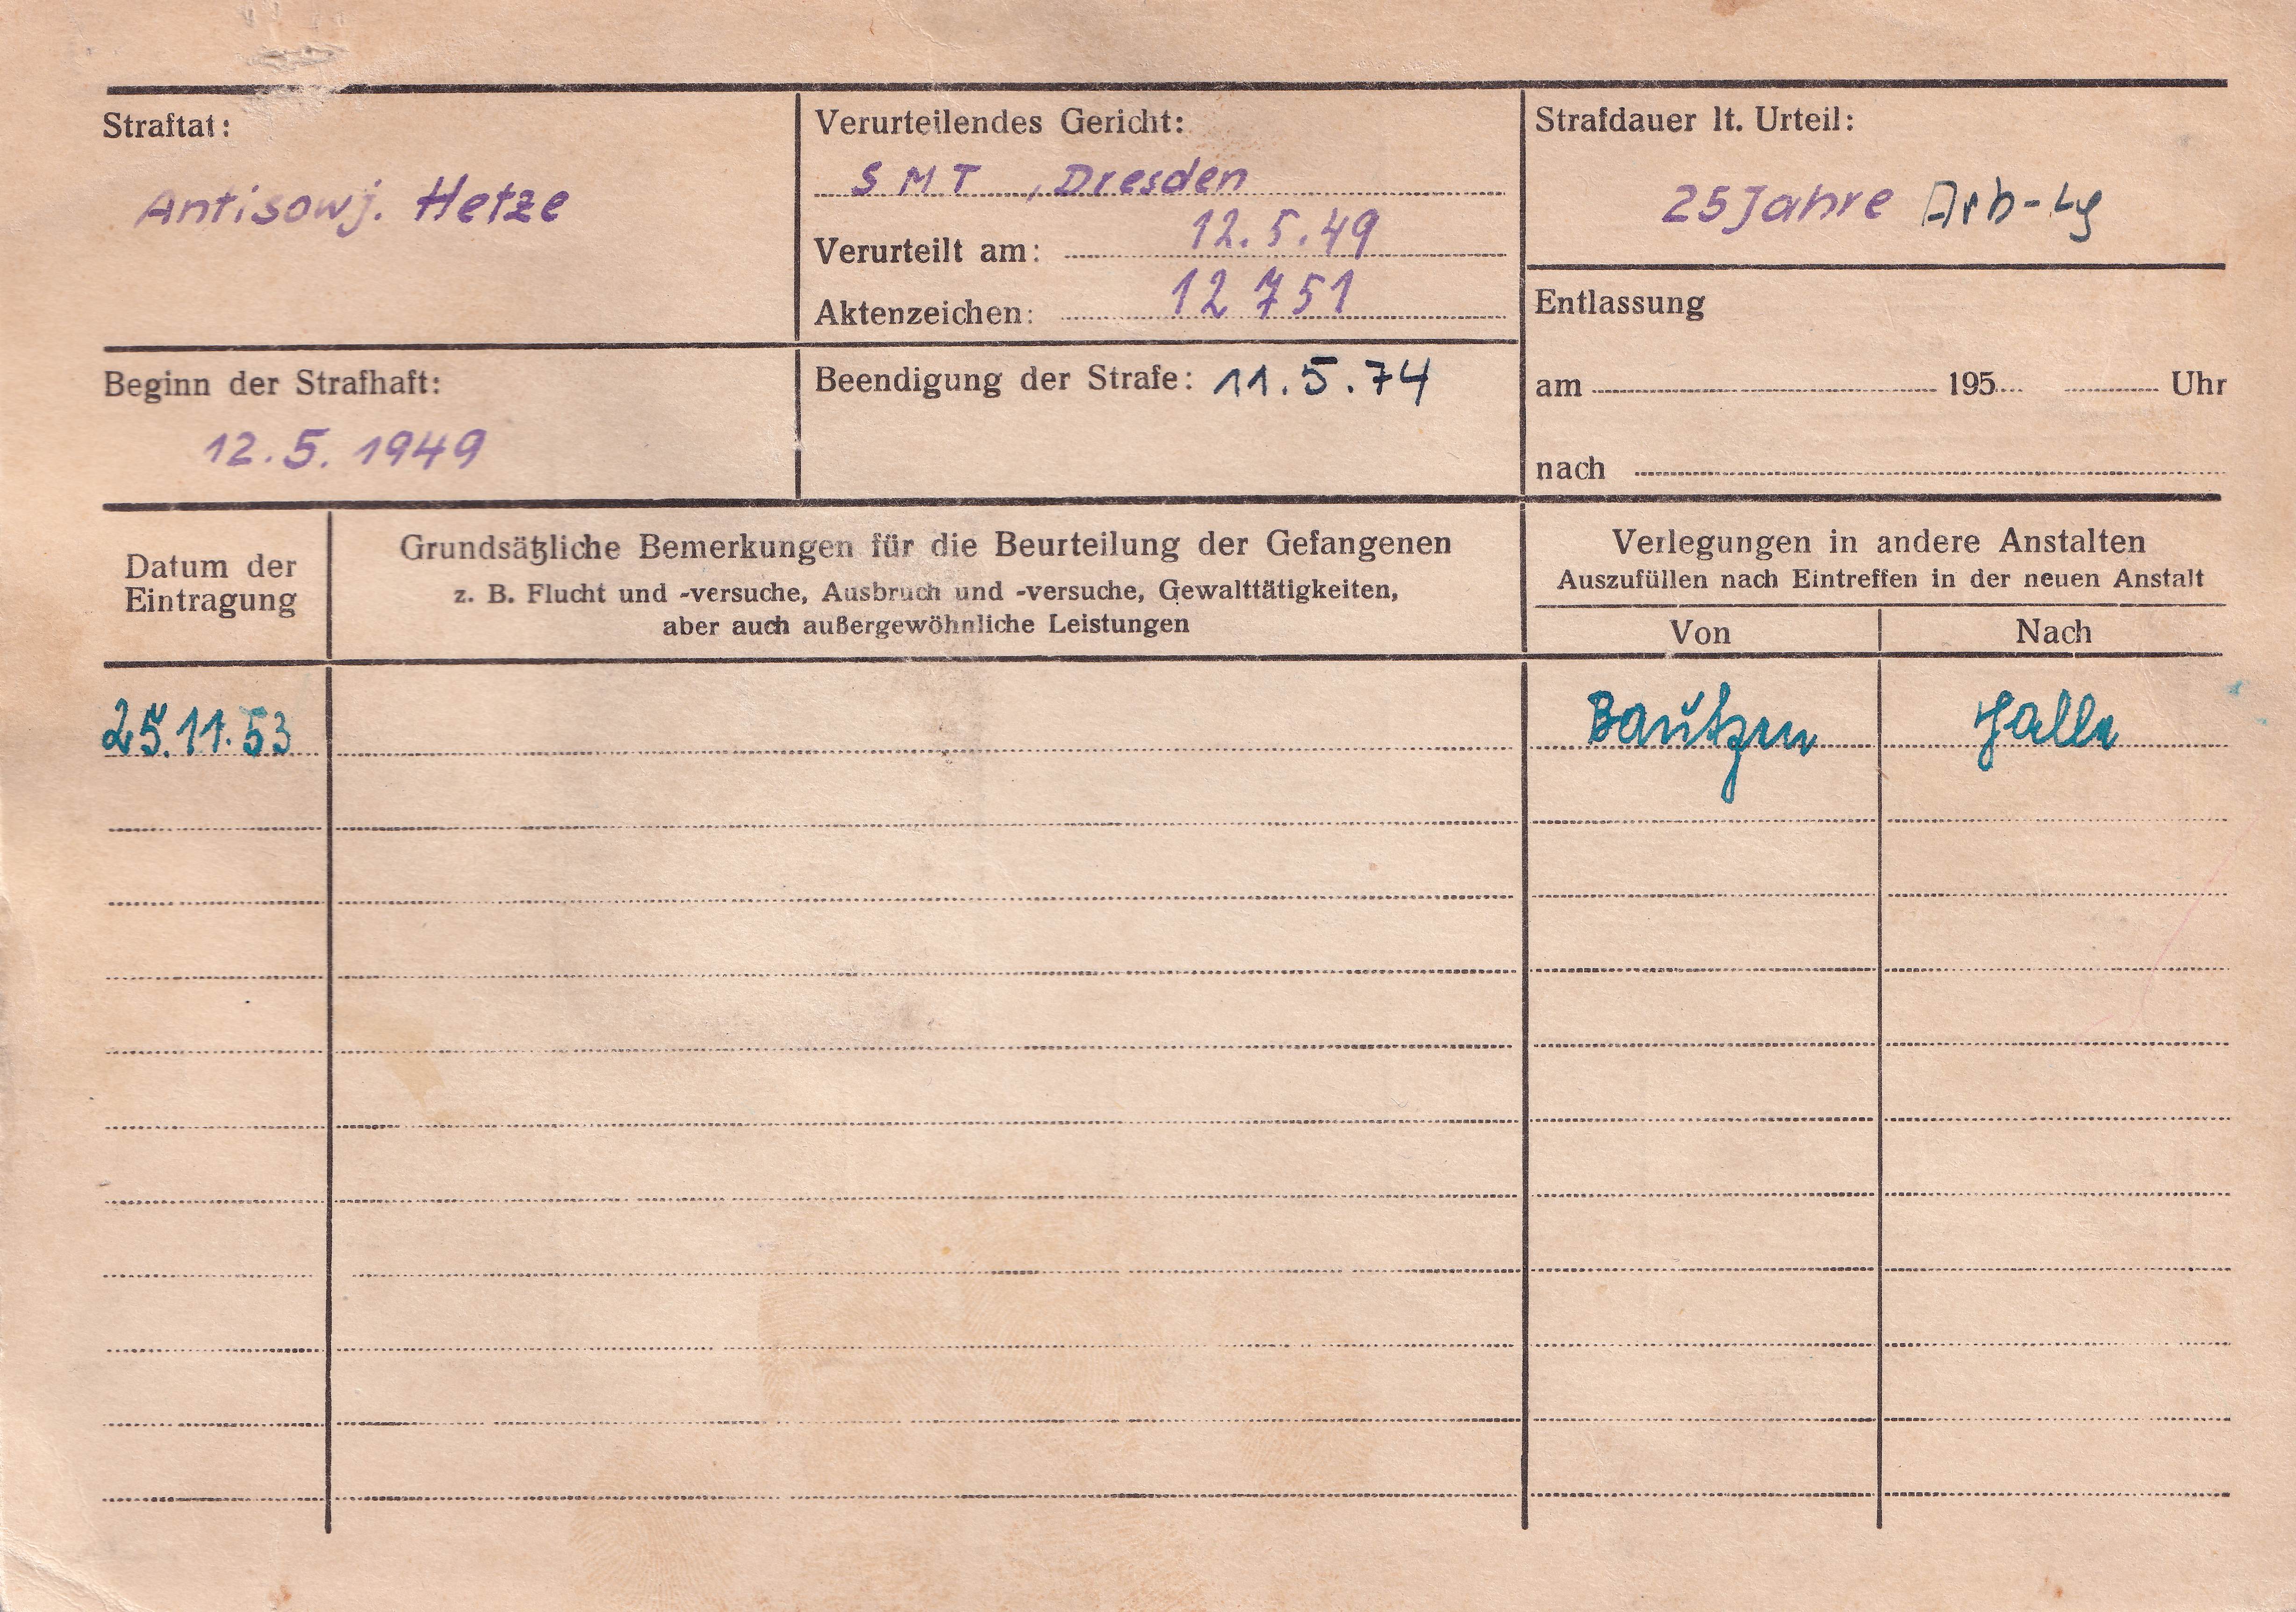 Straftat:
Antisowj. Hetze
Verurteilendes Gericht:
SMT, Dresden
Verurteilt am: 12.5.49
Aktenzeichen: 12751
Strafdauer lt. Urteil:
25 Jahre Arb-Lg
Entlassung
am 195 Uhr
nach
Beginn der Strafhaft:
12.5.1949
Beendigung der Strafe: 11.5.74
Datum der
Eintragung
Grundsätzliche Bemerkungen für die Beurteilung der Gefangenen
z. B. Flucht und -versuche, Ausbruch und -versuche, Gewalttätigkeiten,
aber auch außergewöhnliche Leistungen
Verlegungen in andere Anstalten
Auszufüllen nach Eintreffen in der neuen Anstalt
Von Nach
25.11.53 Bautzen Halle